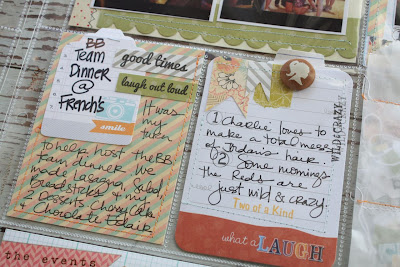 BB
Team
Dinner
@
French's
smile
good times
laugh out loud
It was
my
turn
to help host the BB
team dinner. We
made Lasagna, Salad,
breadsticks & my
2 Desserts Cherry Cake
& Chocolate Eclair
① Charlie loves to
make a total mess
of Jordan's hair.
② Some mornings
the Reds are
just wild & crazy.
Two of a Kind
WILD & CRAZY
what a LAUGH
the events